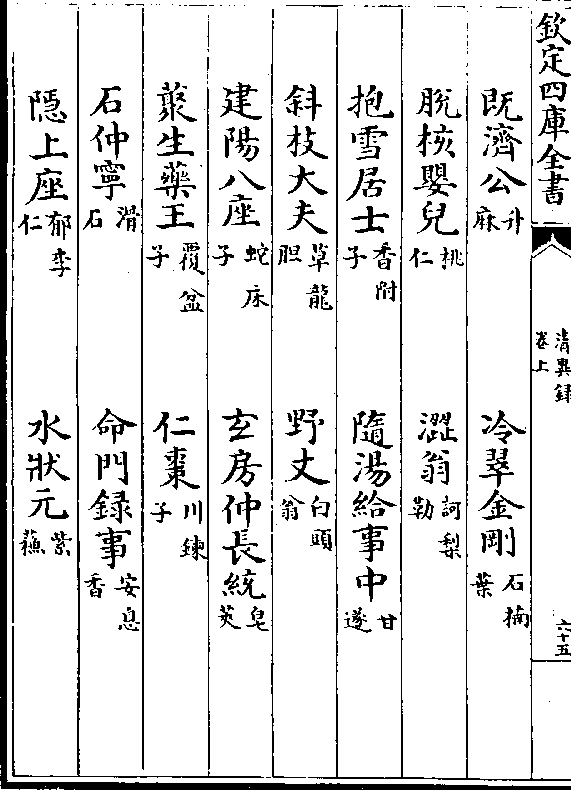 欽定四庫全書
清異錄
卷上
六十五
既濟公升麻 冷翠金剛石楠葉
脫核嬰兒桃仁 澀翁訶梨勒
抱雪居士香附子 隨湯給事中甘遂
斜枝大夫草龍胆 野丈白頭翁
建陽八座蛇床子 玄房仲長統皂莢
藂生藥王覆盆子 仁棗川鍊子
石仲寧滑石 命門録事安息香
隱上座郁李仁 水狀元紫蘓